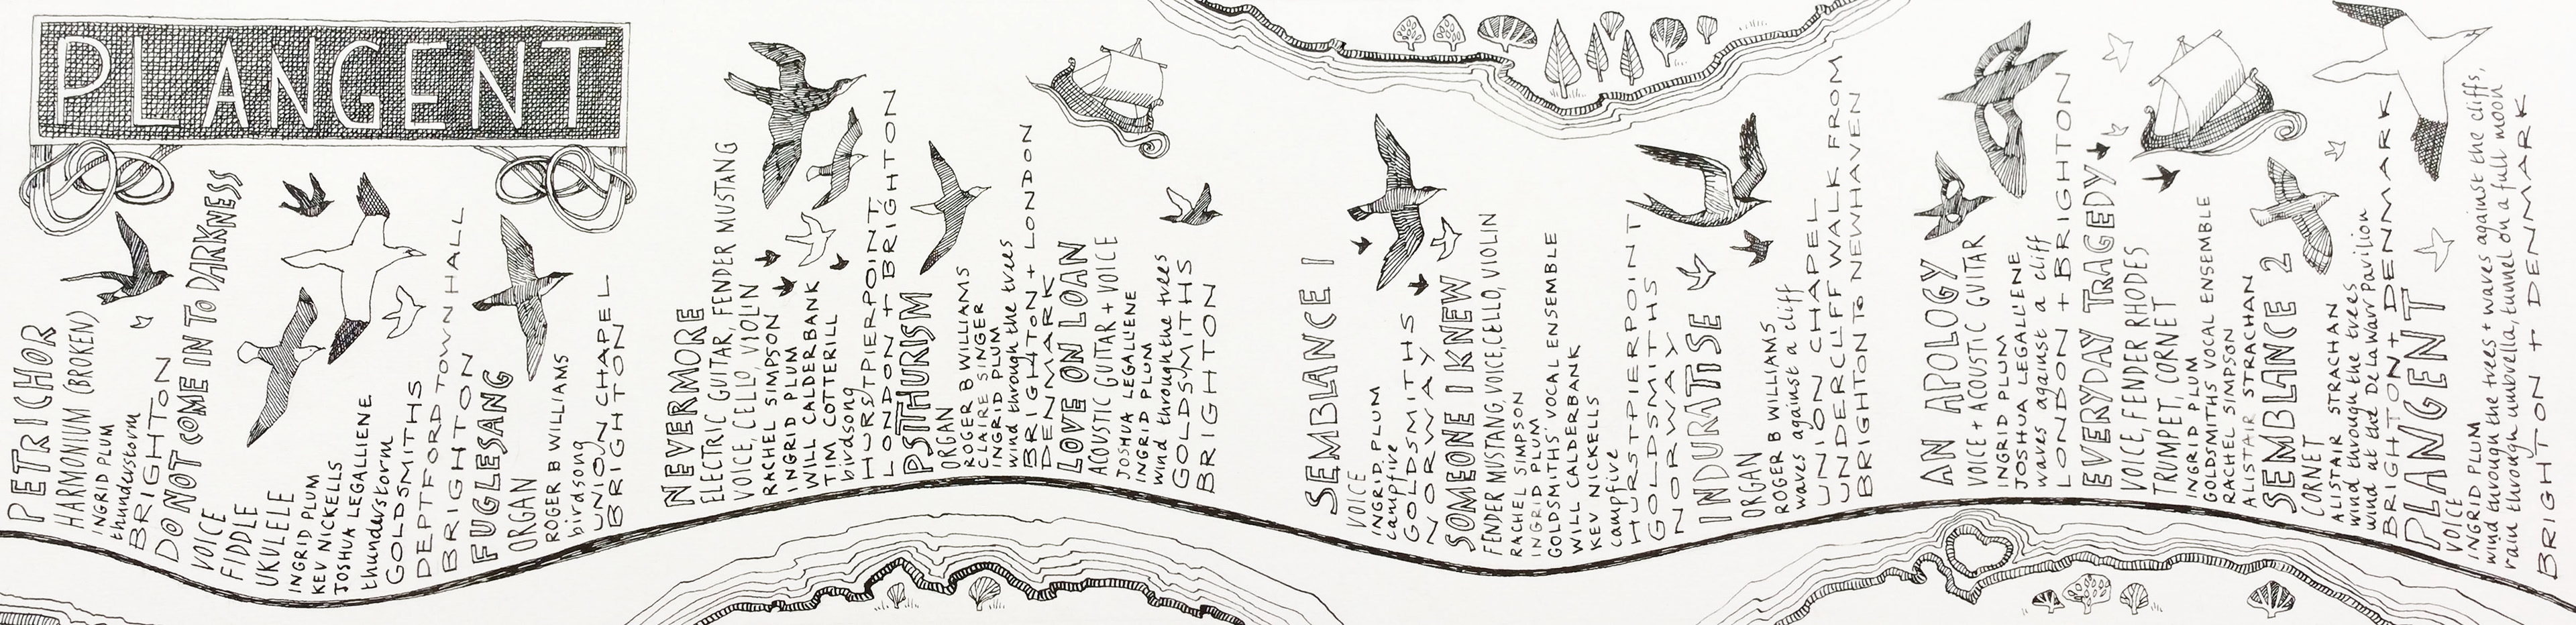 PLANGENT
PETRICHOR
HARMONIUM (BROKEN)
INGRID PLUM
thunderstorm
BRIGHTON
DO NOT COME IN TO DARKNESS
VOICE
FIDDLE
UKULELE
INGRID PLUM
KEV NICKELLS
JOSHUA LEGALLIENE
thunderstorm
GOLDSMITHS
DEPTFORD TOWN HALL
BRIGHTON
FUGLESANG
ORGAN
ROGER B WILLIAMS
birdsong
UNION CHAPEL
BRIGHTON
NEVERMORE
ELECTRIC GUITAR, FENDER MUSTANG
VOICE, CELLO, VIOLIN
RACHEL SIMPSON
INGRID PLUM
WILL CALDERBANK
TIM COTTERILL
birdsong
HURSTPIERPOINT,
LONDON + BRIGHTON
PSITHURISM
ORGAN
ROGER B WILLIAMS
CLAIRE SINGER
INGRID PLUM
wind through the trees
BRIGHTON + LONDON
DENMARK
LOVE ON LOAN
ACOUSTIC GUITAR + VOICE
JOSHUA LEGALLIENE
INGRID PLUM
wind through the trees
GOLDSMITHS
BRIGHTON
SEMBLANCE 1
VOICE
INGRID PLUM
campfire
GOLDSMITHS
NORWAY
SOMEONE I KNEW
FENDER MUSTANG, VOICE, CELLO, VIOLIN
RACHEL SIMPSON
INGRID PLUM
GOLDSMITHS' VOCAL ENSEMBLE
WILL CALDERBANK
KEV NICKELLS
campfire
HURSTPIERPOINT
GOLDSMITHS
NORWAY
INDURATISE
ORGAN
ROGER B WILLIAMS
waves against a cliff
UNION CHAPEL
UNDERCLIFF WALK FROM
BRIGHTON To NEWHAVEN
AN APOLOGY
VOICE + ACOUSTIC GUITAR
INGRID PLUM
JOSHUA LEGALLIENE
waves against a cliff
LONDON + BRIGHTON
EVERYDAY TRAGEDY
VOICE, FENDER RHODES
TRUMPET, CORNET
INGRID PLUM
GOLDSMITHS VOCAL ENSEMBLE
RACHEL SIMPSON
ALISTAIR STRACHAN
SEMBLANCE 2
CORNET
ALISTAIR STRACHAN
wind through the trees
wind at the De La Warr Pavilion
BRIGHTON + DENMARK
PLANGENT
VOICE
INGRID PLUM
wind through the trees + waves against the cliffs,
rain through umbrella, tunnel on a full moon
BRIGHTON + DENMARK